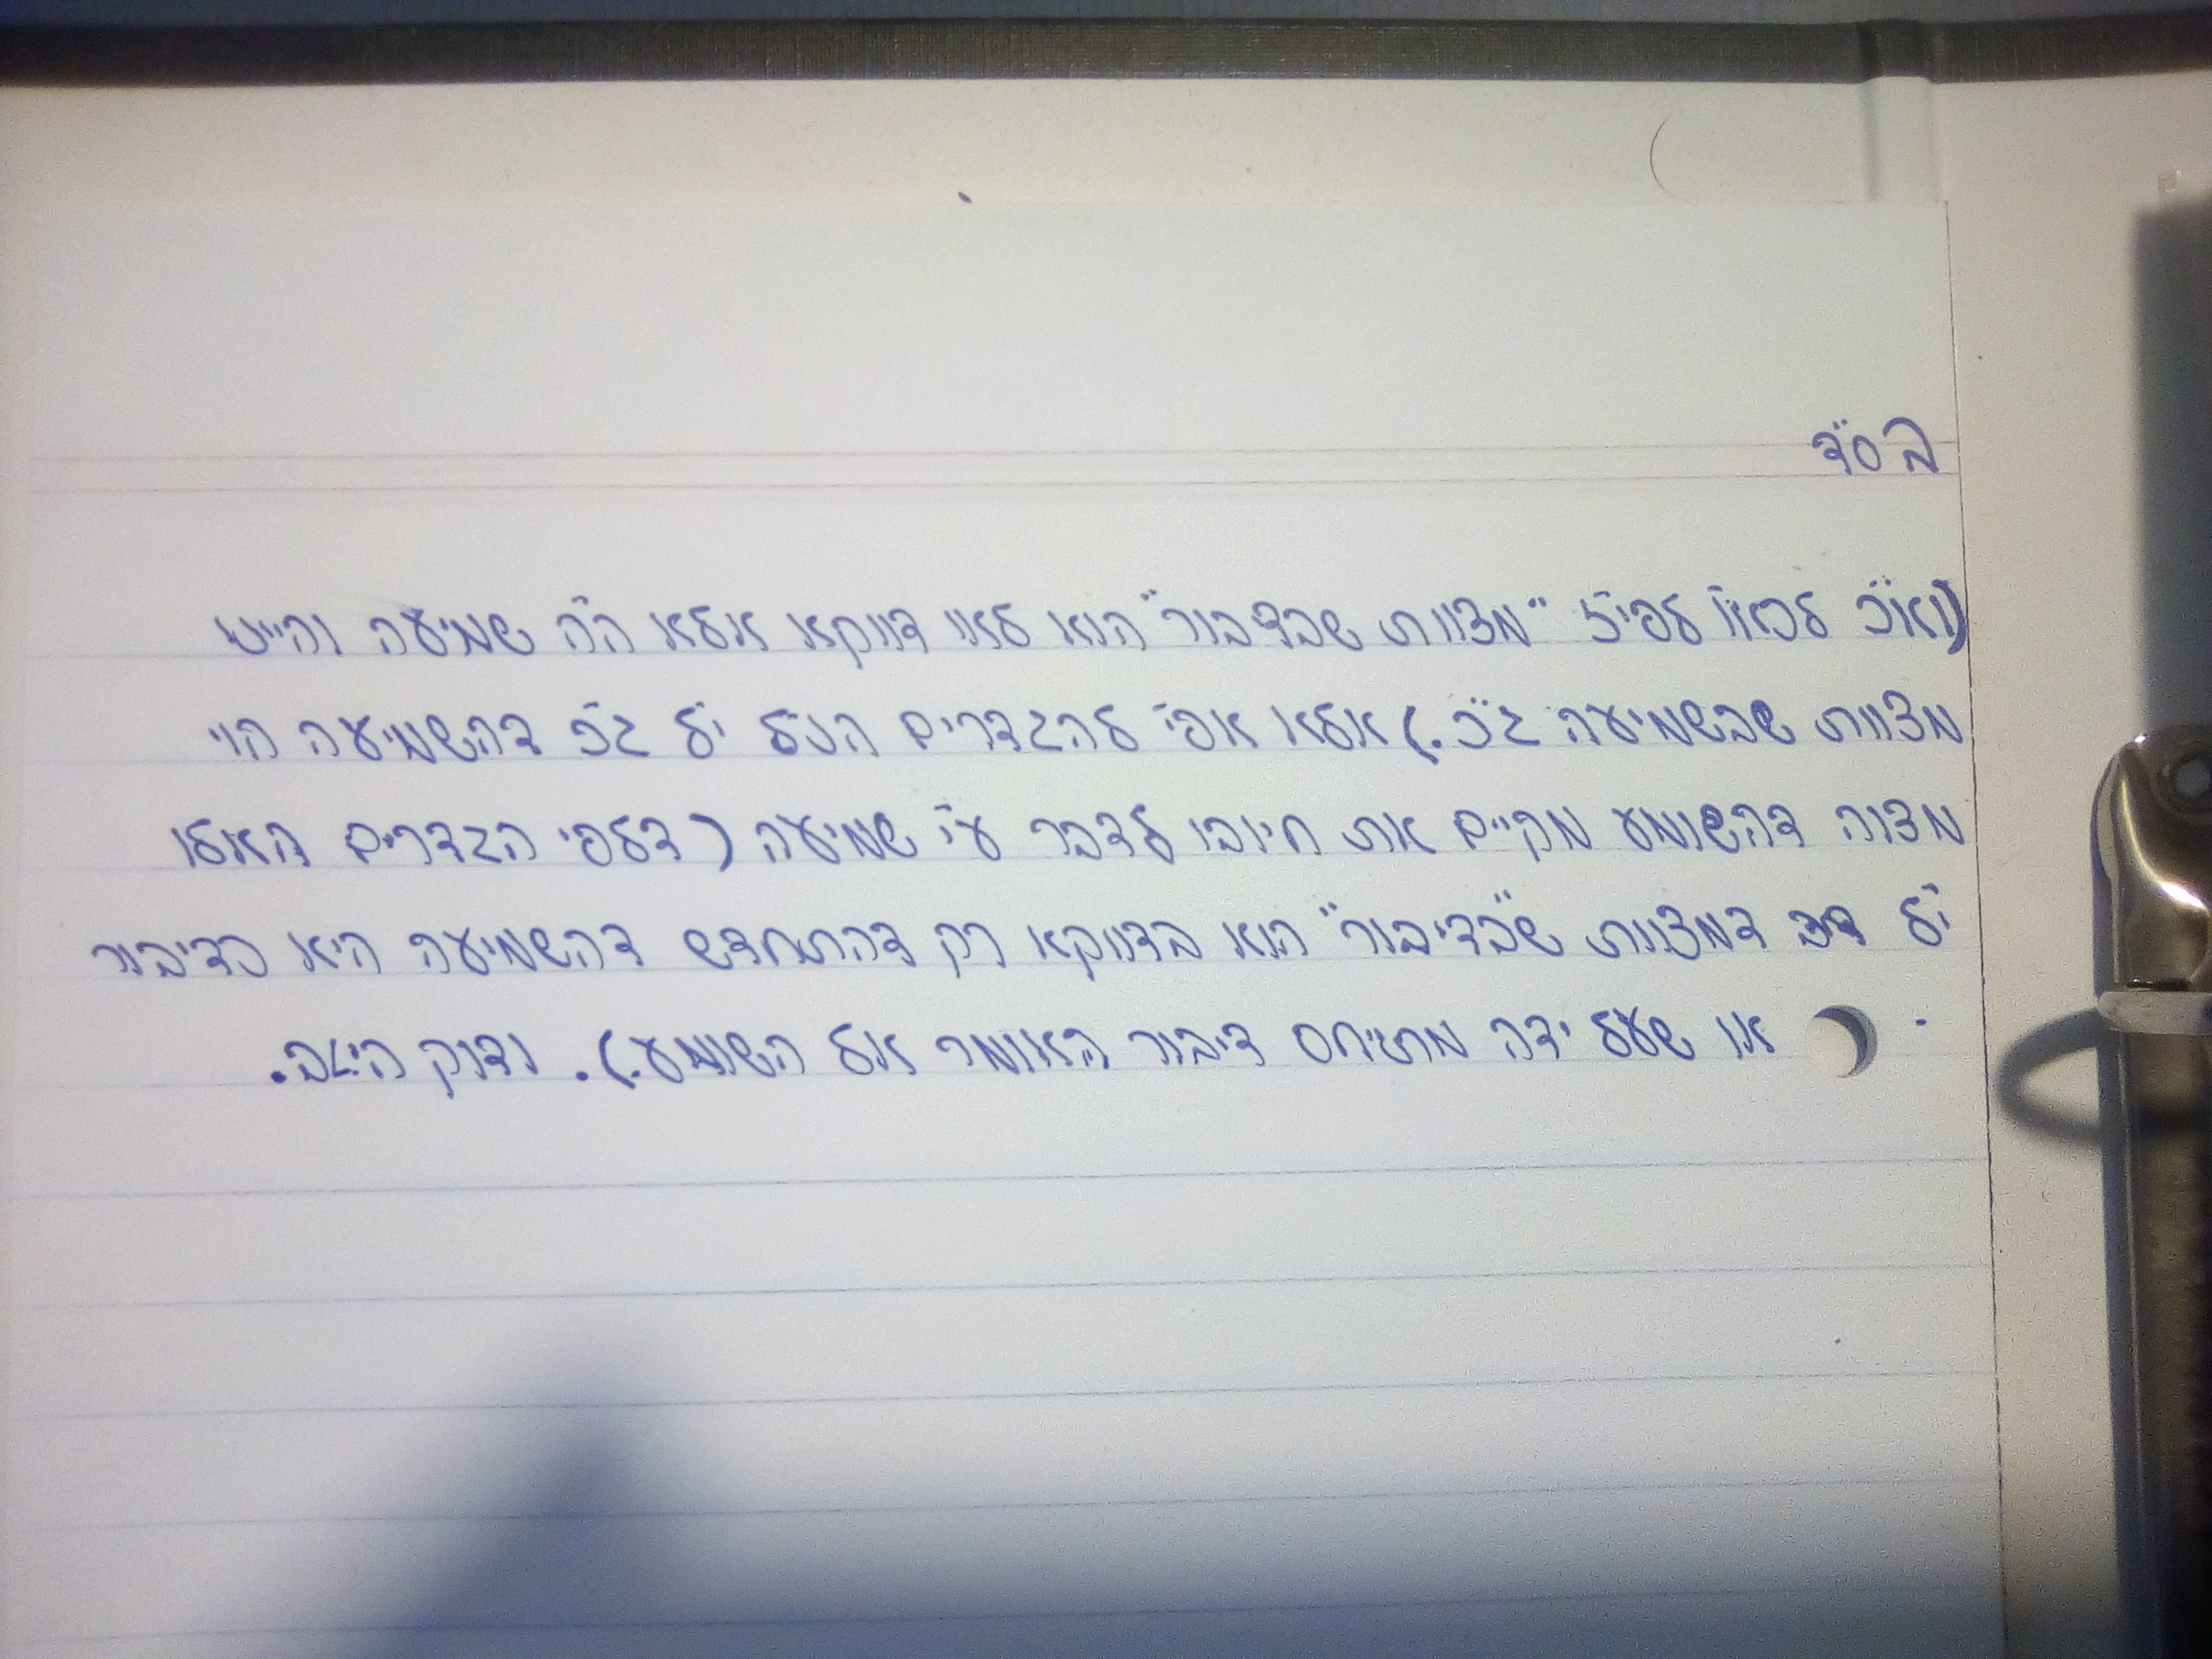 בס"ד
(וא"כ לכאו' לפי"ז "מצוות שבדיבור" הוא לאו דווקא אלא ה"ה שמיעה והיינו
מצוות שבשמיעה ג"כ.) אלא אפי' להגדרים הנ"ל י"ל ג"כ דהשמיעה הוי
מצוה דהשומע מקיים את חיובו לדבר ע"י שמיעה (דלפי הגדרים האלו
י"ל דמצוות ש"בדיבור" הוא בדווקא רק דהתחדש דהשמיעה היא כדיבור
או שעל ידה מתייחס דיבור האומר אל השומע.). ודוק היטב.